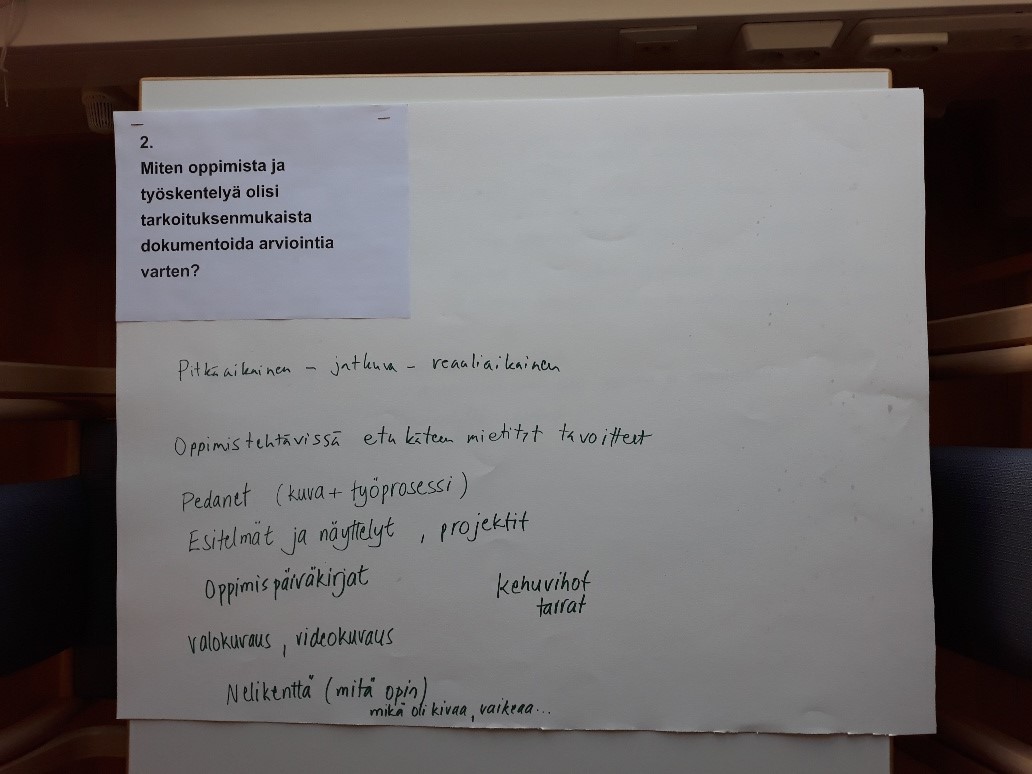 2.
Miten oppimista ja
työskentelyä olisi
tarkoituksenmukaista
dokumentoida arviointia
varten?
Pitkäaikainen - jatkuva - reaaliaikainen
Oppimistehtävissä etukäteen mietityt tavoitteet
Pedanet (kuva + työprosessi)
Esitelmät ja näyttelyt, projektit
Oppimispäiväkirjat
kehuvihot
tarrat
valokuvaus, videokuvaus
Nelikenttä (mitä opin)
mikä oli kivaa, vaikeaa...